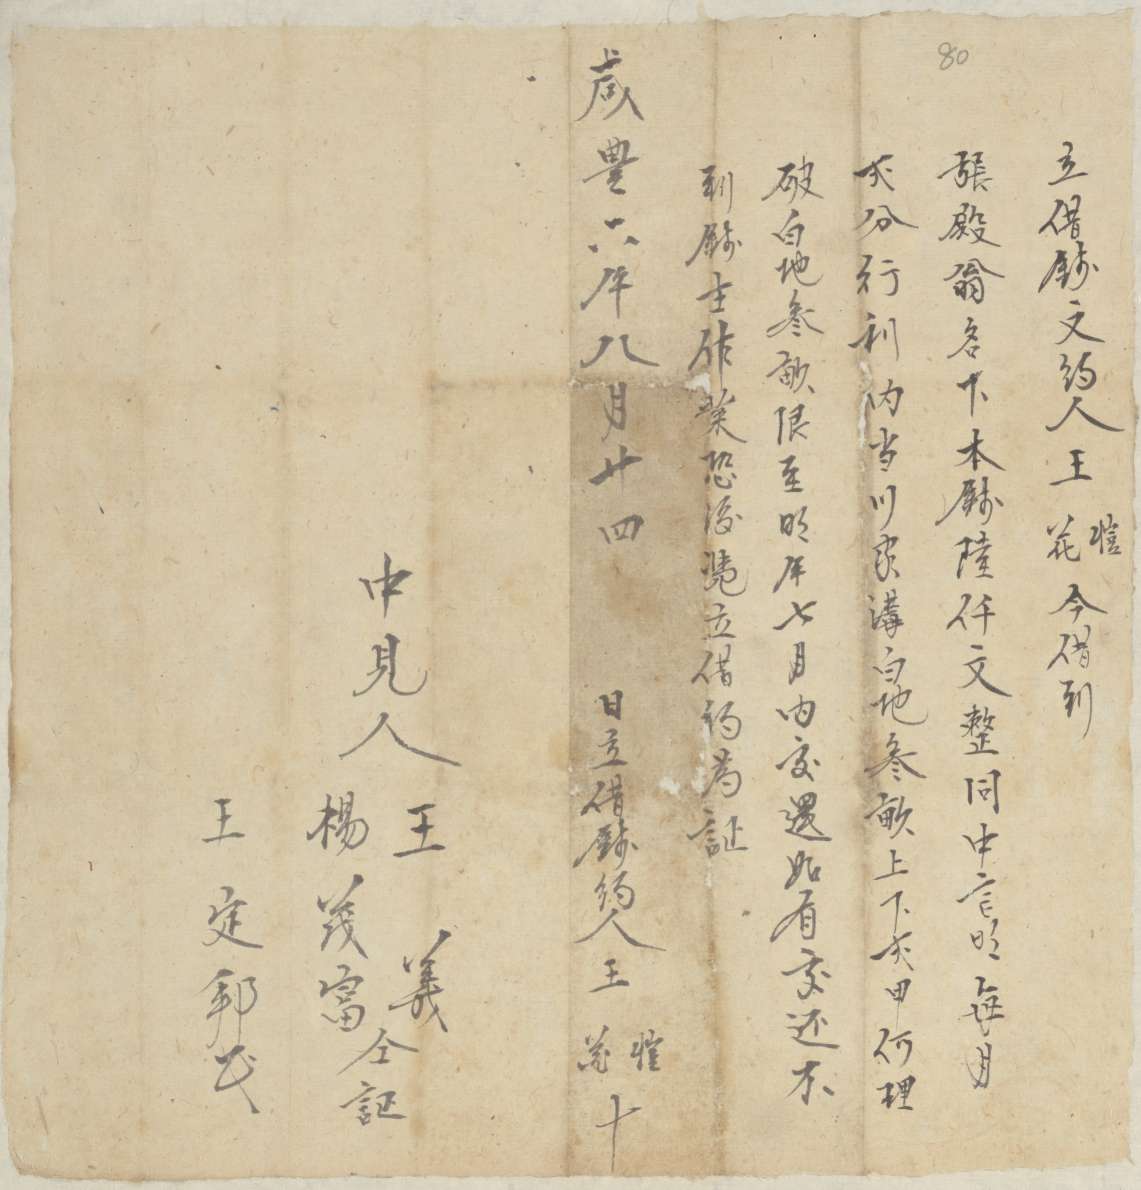 80
立借錢文約人王愷花今借到
張殿翁名下本錢陸仟文整同中言明每月
弍分行利内当川良溝白地叁畝上下弍甲何理
破白地叁畝限至明年七月内交還如有交还不
到錢主作業恐後憑立借約為証
咸豊六年八月廿四
日立借錢約人王愷花十
中見人
王義
楊茂富仝証
王定邦